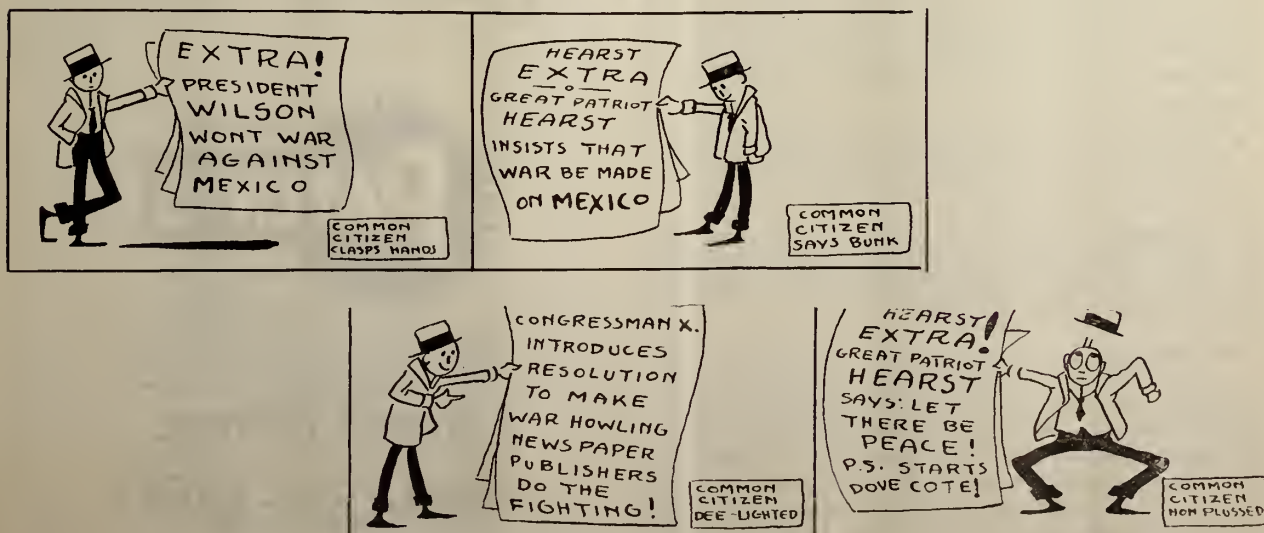 EXTRA!
PRESIDENT
WILSON
WONT WAR
AGAINST
MEXICO
COMMON
CITIZEN
CLASPS HANDS
HEARST
EXTRA
GREAT PATRIOT
HEARST
INSISTS THAT
WAR BE MADE
ON MEXICO
COMMON
CITIZEN
SAYS BUNK
CONGRESSMAN X.
INTRODUCES
RESOLUTION
TO MAKE
WAR HOWLING
NEWSPAPER
PUBLISHERS
DO THE
FIGHTING!
COMMON
CITIZEN
DEE-LIGHTED
HEARST!
EXTRA!
GREAT PATRIOT
HEARST
SAYS: LET
THERE BE
PEACE!
P.S. STARTS
DOVE COTE!
COMMON
CITIZEN
NON PLUSSED